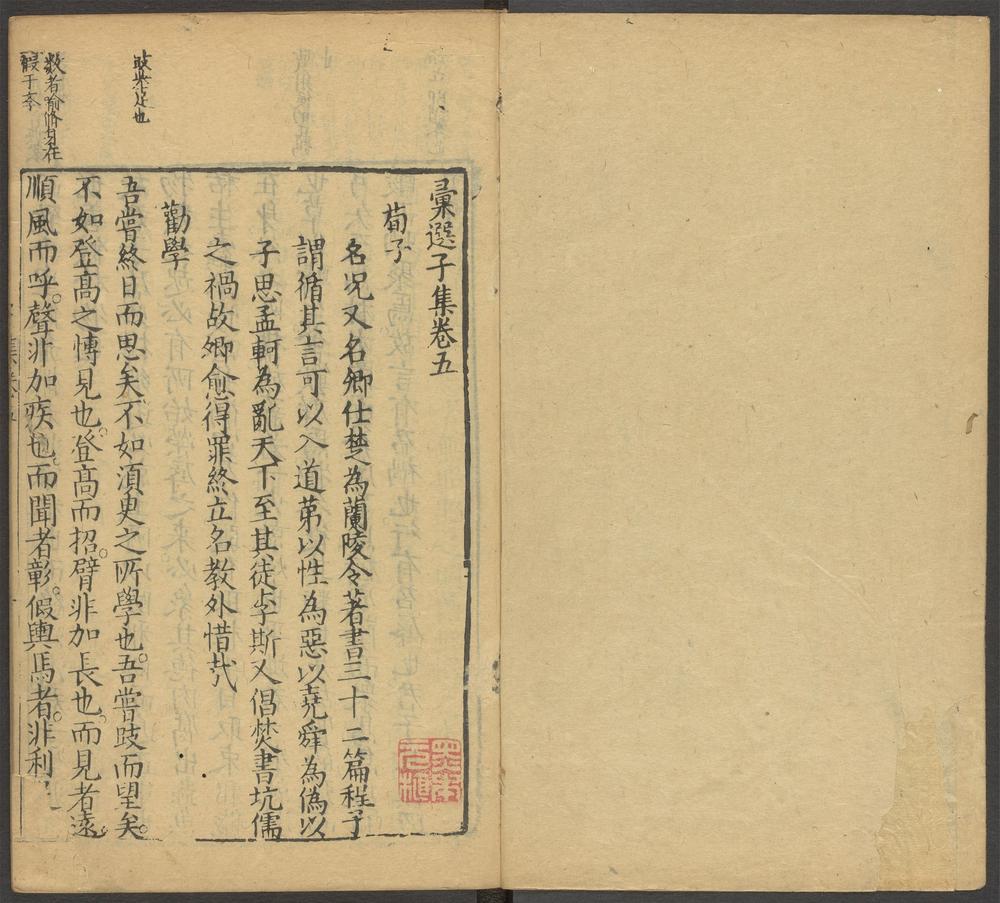 彙選子集卷五
荀子
名况又名卿仕楚為蘭陵令著書三十二篇程子
謂循其言可以入道苐以性為惡以堯舜為偽以
子思孟軻為亂天下至其徒李斯又倡焚書坑儒
之禍故卿愈得罪終立名教外惜㢤
勸學
吾嘗終日而思矣不如須臾之所學也吾嘗跂而望矣
不如登髙之博見也。登髙而招。臂非加長也。而見者遠。
順風而呼。聲非加疾也。而聞者彰。假輿馬者。非利足
跂举足也
数者喻脩身在
假于李